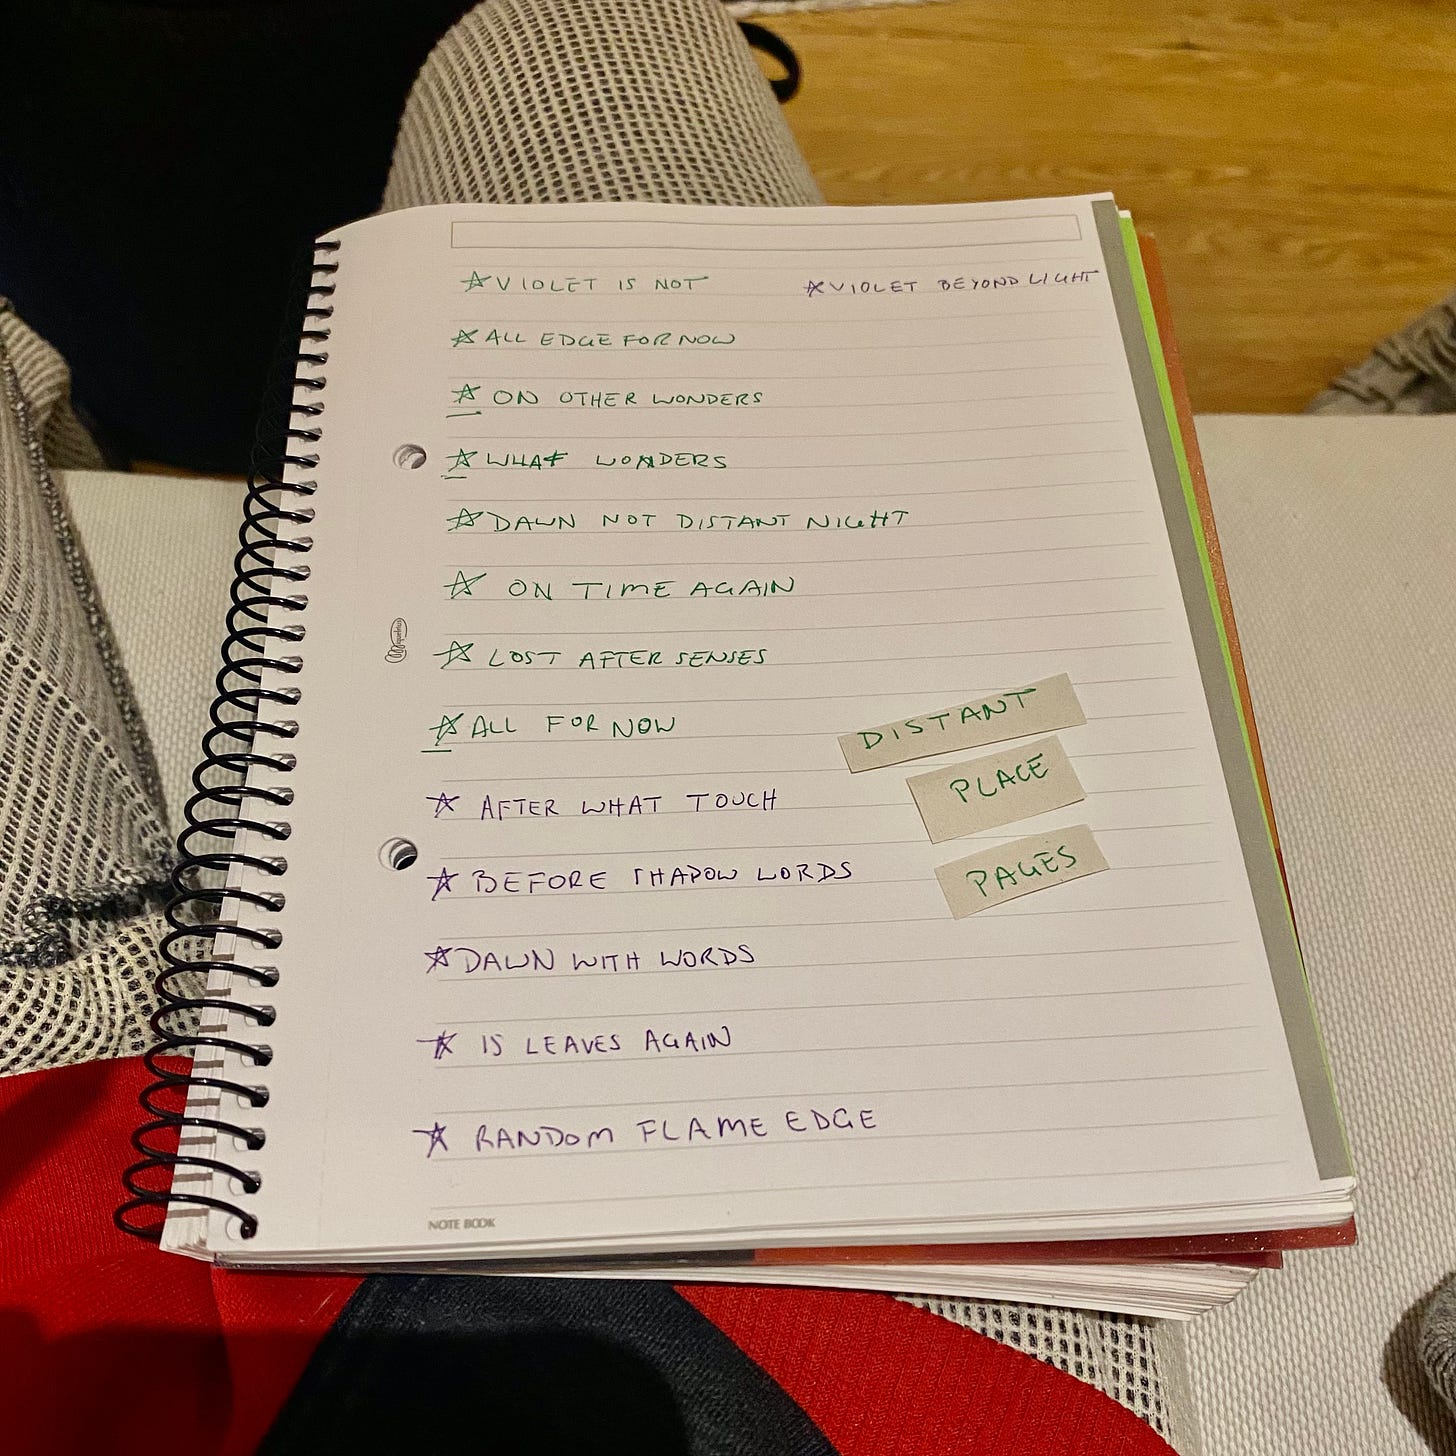 ☆ VIOLET IS NOT ☆ VIOLET BEYOND LIGHT
☆ ALL EDGE FOR NOW
☆ ON OTHER WONDERS
☆ WHAT WONDERS
☆ DAWN NOT DISTANT NIGHT
☆ ON TIME AGAIN
☆ LOST AFTER SENSES
☆ ALL FOR NOW
DISTANT
PLACE
☆ AFTER WHAT TOUCH
☆ BEFORE SHADOW WORDS
PAGES
☆ DAWN WITH WORDS
☆ IS LEAVES AGAIN
☆ RANDOM FLAME EDGE
NOTE BOOK